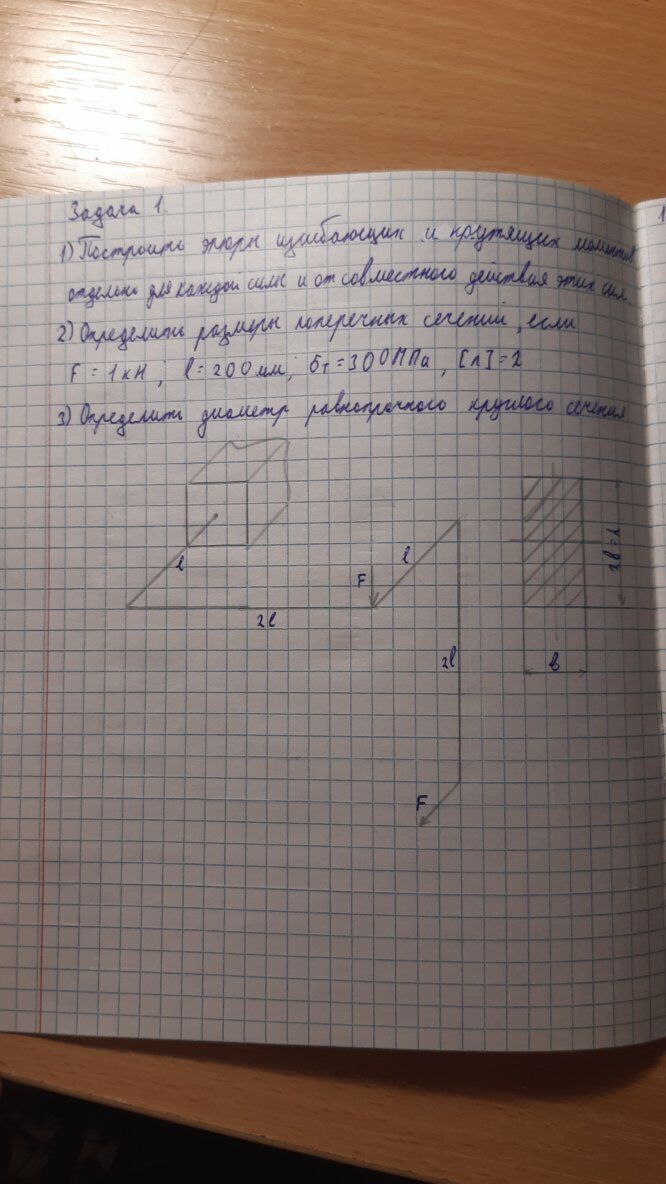 Задача 1.
1) Построить эпюры изгибающих и крутящих моментов
отдельно для каждой силы и от совместного действия этих сил.
2) Определить размеры поперечных сечений, если
F = 1кН; l = 200мм; σт = 300МПа, [n] = 2
3) Определить диаметр равнопрочного круглого сечения
l
2l
F
l
2l
F
в
1